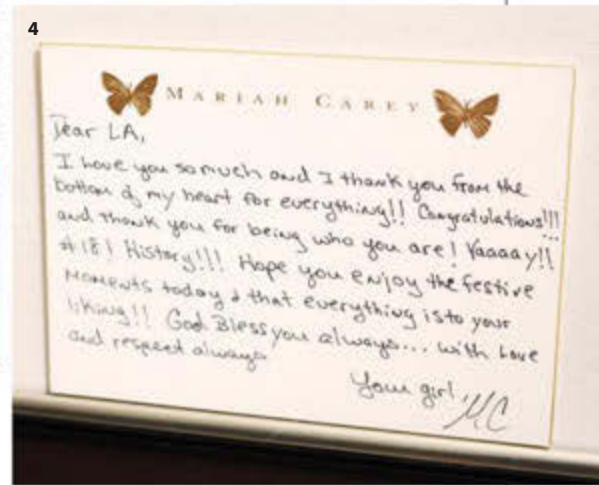 4
MARIAH CAREY
Dear LA,
I love you so much and I thank you from the
bottom of my heart for everything!! Congratulations!!!
and thank you for being who you are! Yaaaay!!
#18! History!!! Hope you enjoy the festive
moments today & that everything is to your
liking!! God Bless you always... with Love
and respect always
Your girl,
MC